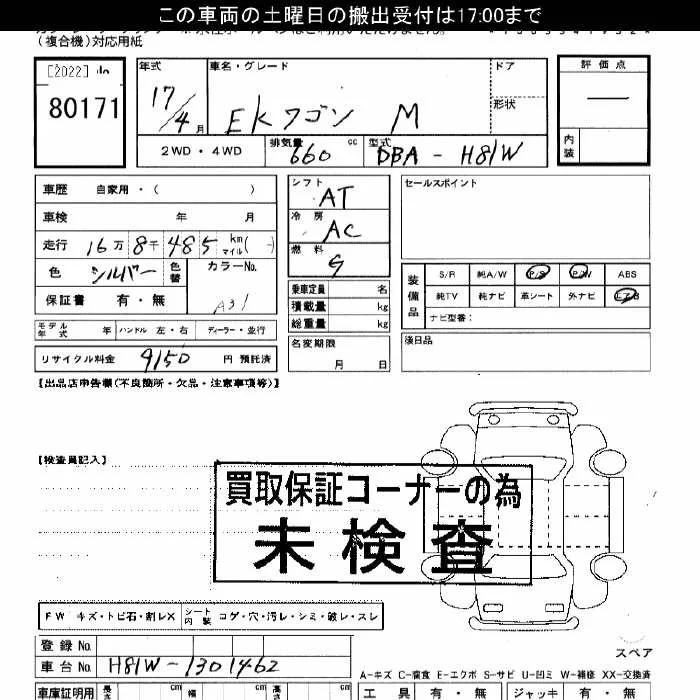 この車両の土曜日の搬出受付は17:00まで
(複合機)対応用紙
[2022]
80171
年式 車名・グレード ドア 評価点
17/4月 EKワゴン M 形状 —
2WD・4WD 排気量 660 cc 型式 DBA-H81W 内装
車歴 自家用・( )
車検 年 月
走行 16万8千485 km マイル( )
色 シルバー 色替 カラーNo. A31
保証書 有・無
モデル年式 年 ハンドル 左・右 ディーラー・並行
リサイクル料金 9150 円 預託済
シフト AT
冷房 AC
燃料 G
乗車定員 名
積載量 kg
総重量 kg
名変期限 月 日
セールスポイント
装備品 S/R 純A/W P/S P/W ABS
純TV 純ナビ 革シート 外ナビ エアB
ナビ型番:
後日品
【出品店申告欄(不良箇所・欠品・注意事項等)】
【検査員記入】
買取保証コーナーの為
未検査
FW キズ・トビ石・割レX シート内装 コゲ・穴・汚レ・シミ・破レ・スレ
登録No.
車台No. H81W-1301462
スペア
A-キズ C-腐食 E-エクボ S-サビ U-凹ミ W-補修 XX-交換済
車庫証明用 長さ cm 幅 cm 高さ cm
工具 有・無 ジャッキ 有・無